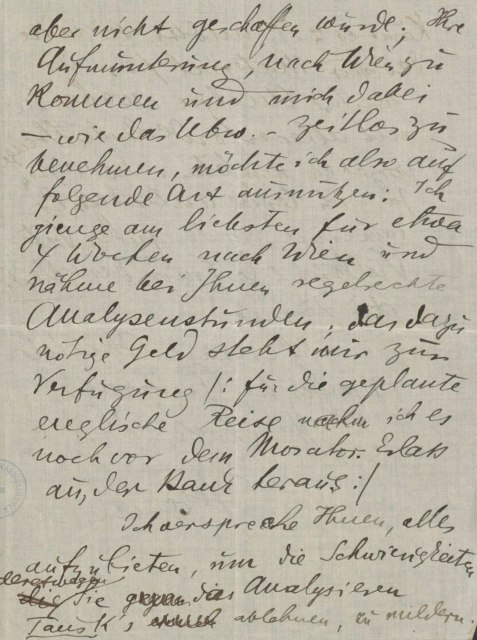 aber nicht geschaffen wurde; Ihre
Aufmunterung, nach Wien zu
kommen und mich dabei
– wie das Ubw. – zeitlos zu
benehmen, möchte ich also auf
folgende Art ausnützen: Ich
gienge am liebsten für etwa
4 Wochen nach Wien und
nähme bei Ihnen regelrechte
Analysenstunden; das dazu
nötige Geld steht mir zur
Verfügung /: für die geplante
englische Reise nahm ich es
noch vor dem Morator. Erlass
aus der Bank heraus :/
Ich verspreche Ihnen, alles
aufzubieten, um die Schwierigkeiten
derentwegen
die Sie gegen das Analysieren
Tausk's ablehnen, zu mildern.